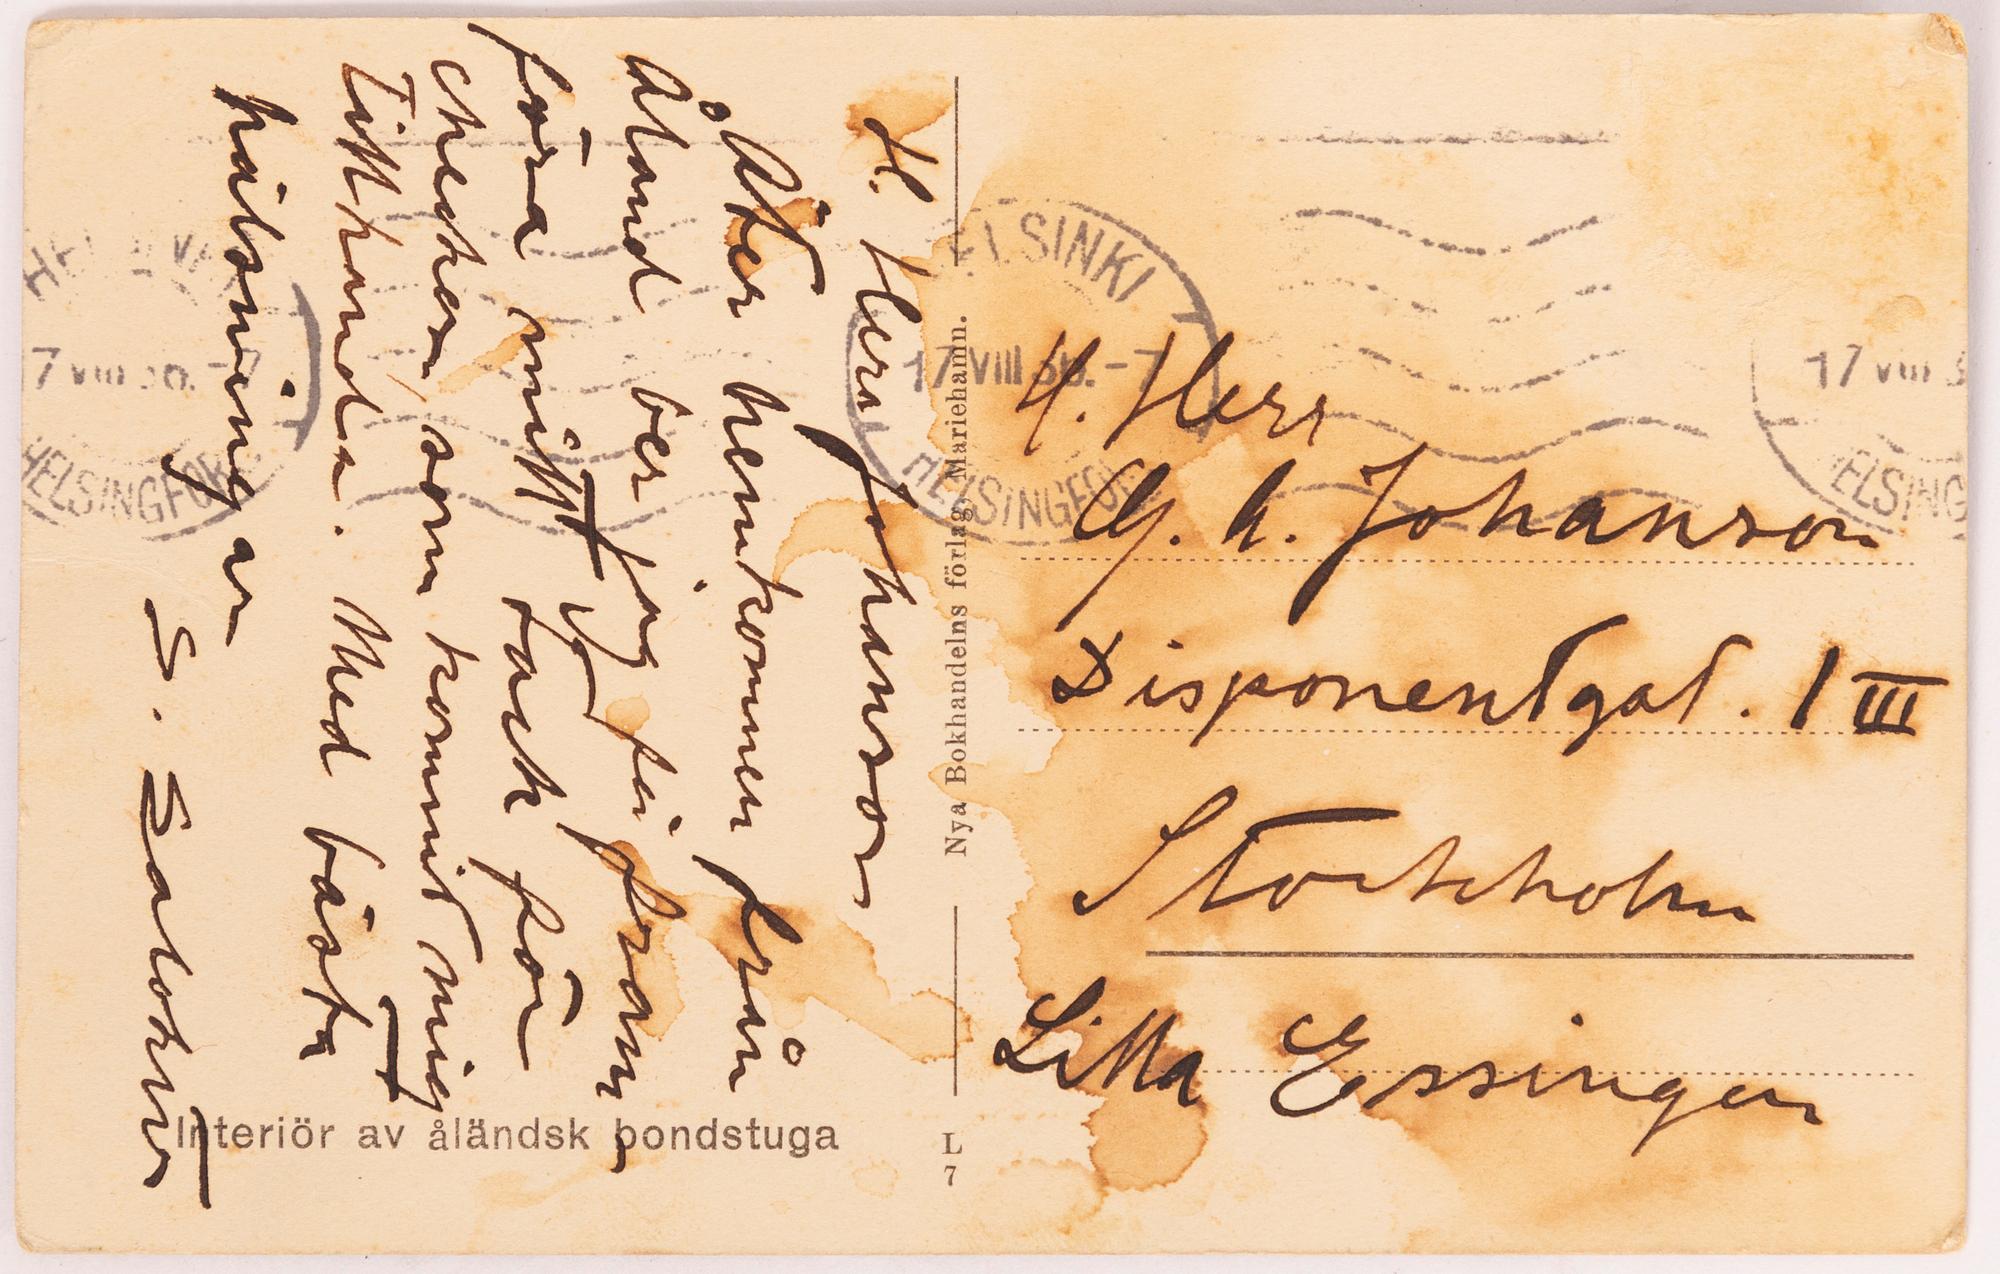 H. Herr Johanson
Åter hemkommen från
Åland ber jag få fram
föra mitt tack för
checken som kommit mig
tillhanda. Med bästa
hälsningar
S. Salokivi
Interiör av åländsk bondstuga
Nya Bokhandelns förlag, Mariehamn.
L
7
HELSINKI
17 VIII 36. - 7
HELSINGFORS
17 VIII
HELSINGFORS
H. Herr
G. A. Johanson
Disponentgat. 1 III
Stockholm
Lilla Essingen